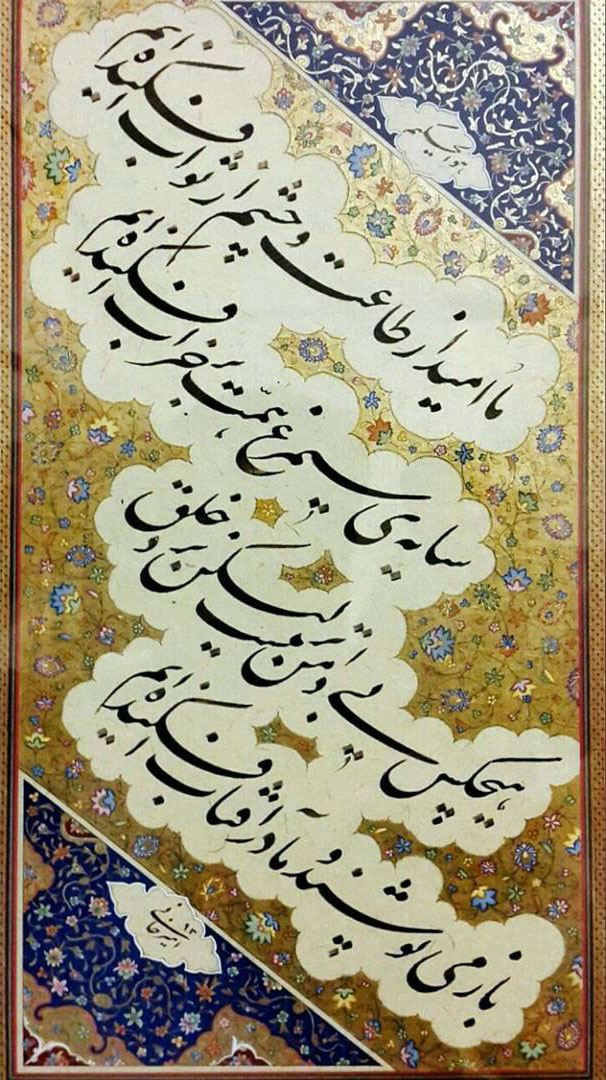 هوالحکیم
ما امید از طاعت و چشم از ثواب افکنده‌ایم
سایه‌ی سیمرغ همّت بر خراب افکنده‌ایم
هیچکس بی دامن تر نیست لیکن نزد خلق
باز می پوشند و ما در آفتاب افکنده‌ایم
امیرخانی